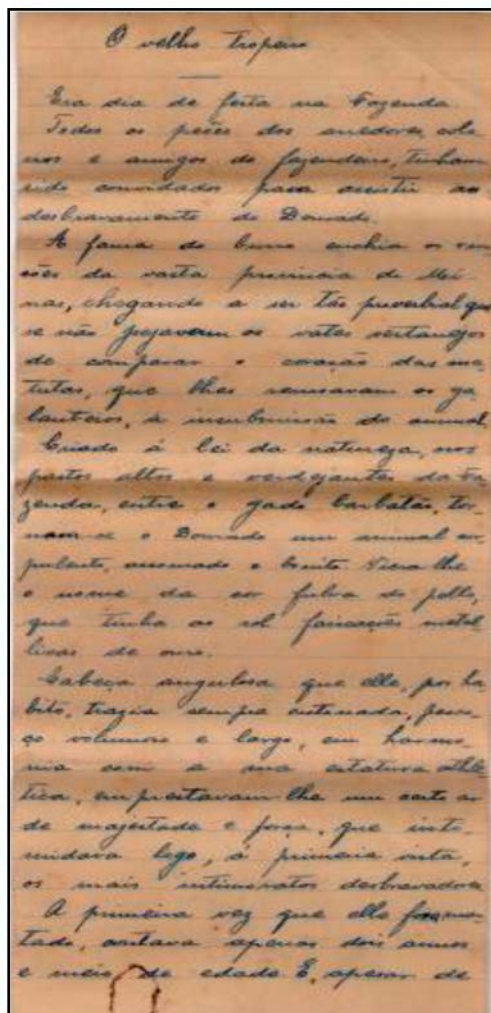 O velho tropeiro
Era dia de festa na Fazenda.
Todos os peões dos arredores, colo
nos e amigos do fazendeiro, tinham
sido convidados para assistir ao
desbravamento do Dourado.
A fama do burro enchia os rin-
cões da vasta provincia de Mi-
nas, chegando a ser tão proverbial que
se não pejavam os vates sertanejos
de comparar o coração das ma-
tutas, que lhes recusavam os ga-
lanteios, á insubmissão do animal.
Criado á lei da natureza, nos
pastos altos e verdejantes da Fa
zenda, entre o gado barbatão, tor-
nara-se o Dourado um animal cor-
pulento, assomado e bonito. Viera-lhe
o nome da cor fulva do pello,
que tinha ao sol faiscações metal-
licas de ouro.
Cabeça angulosa que elle, por ha-
bito, trazia sempre entonada, pesco-
ço volumoso e largo, em harmo-
nia com a sua estatura athle-
tica, emprestavam-lhe um certo ar
de majestade e força, que inti-
midava logo, á primeira vista,
os mais intimoratos desbravadores.
A primeira vez que elle fora mon-
tado, contava apenas dois annos
e meio de edade. E, apesar de